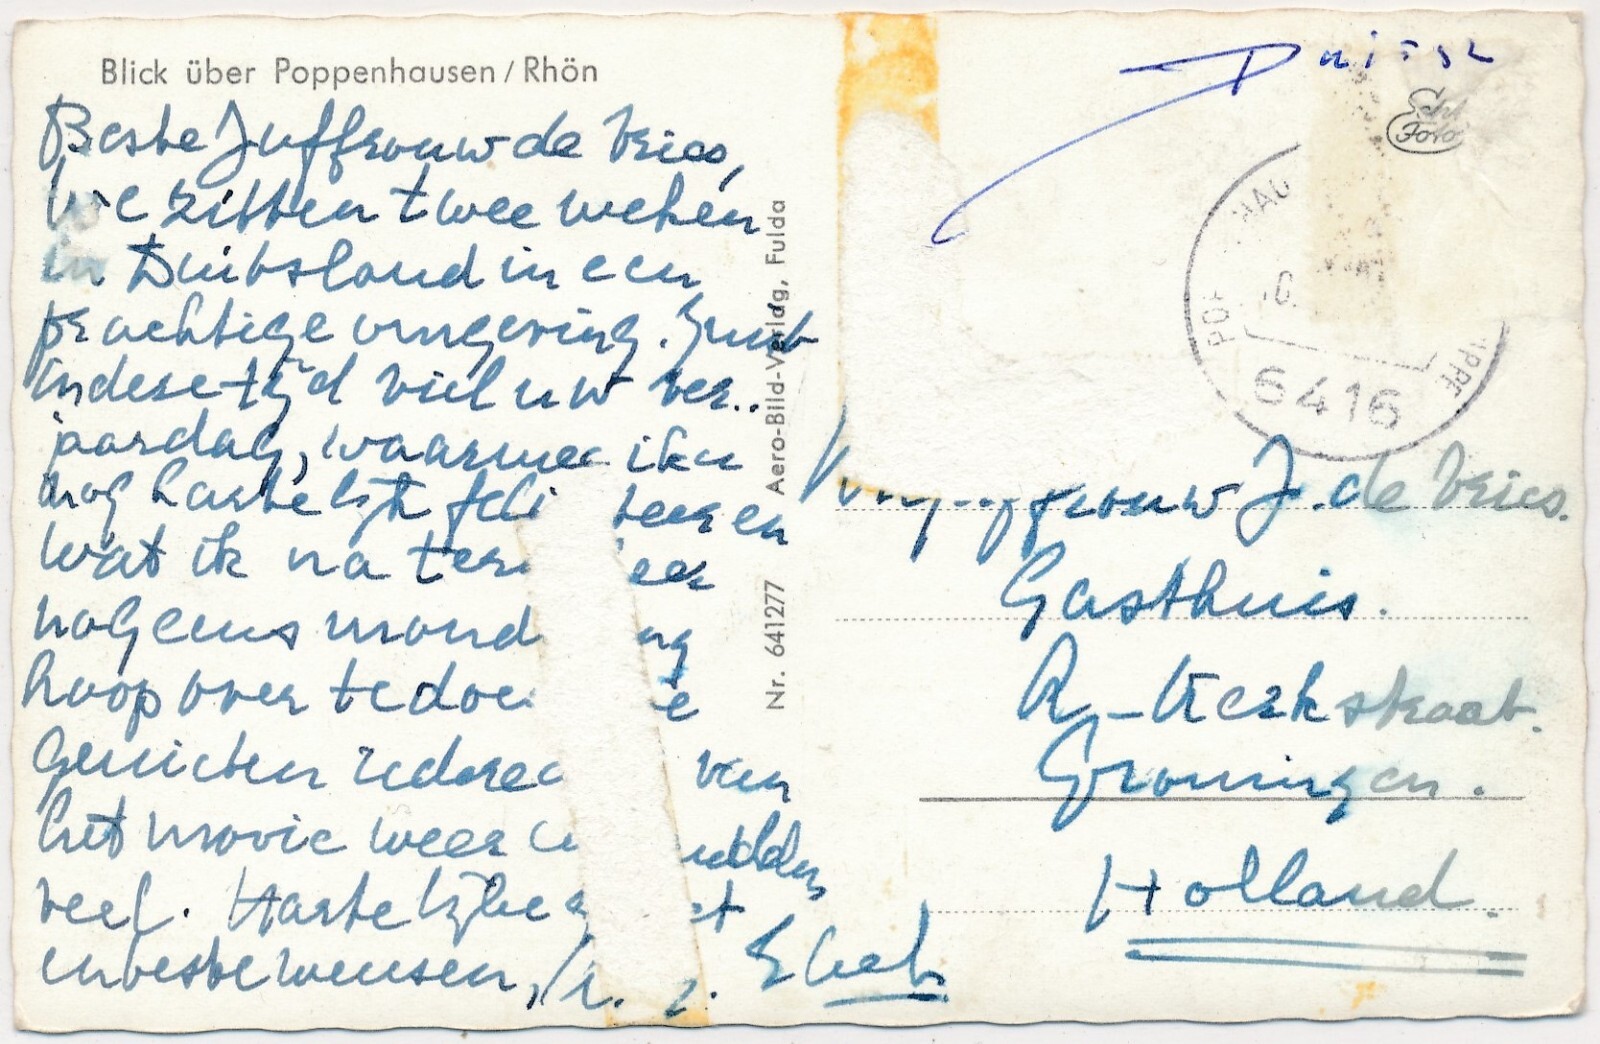 Blick über Poppenhausen/Rhön
Beste Juffrouw de Vries,
We zitten twee weken
in Duitsland in een
prachtige omgeving. Juist
in deze tijd viel uw ver..
jaardag, waarmee ik u
nog hartelijk feli teer en
wat ik na ter eer
nog eens mond ng
hoop over te doe e
genieten van
het mooie weer
veel. Hartelijke g et
en beste wensen,
Nr. 641277 Aero-Bild-Verlag, Fulda
Echt Foto
6416
Mej. Juffrouw J. de Vries.
Gasthuis.
R.-Kerkstraat.
Groningen.
Holland.